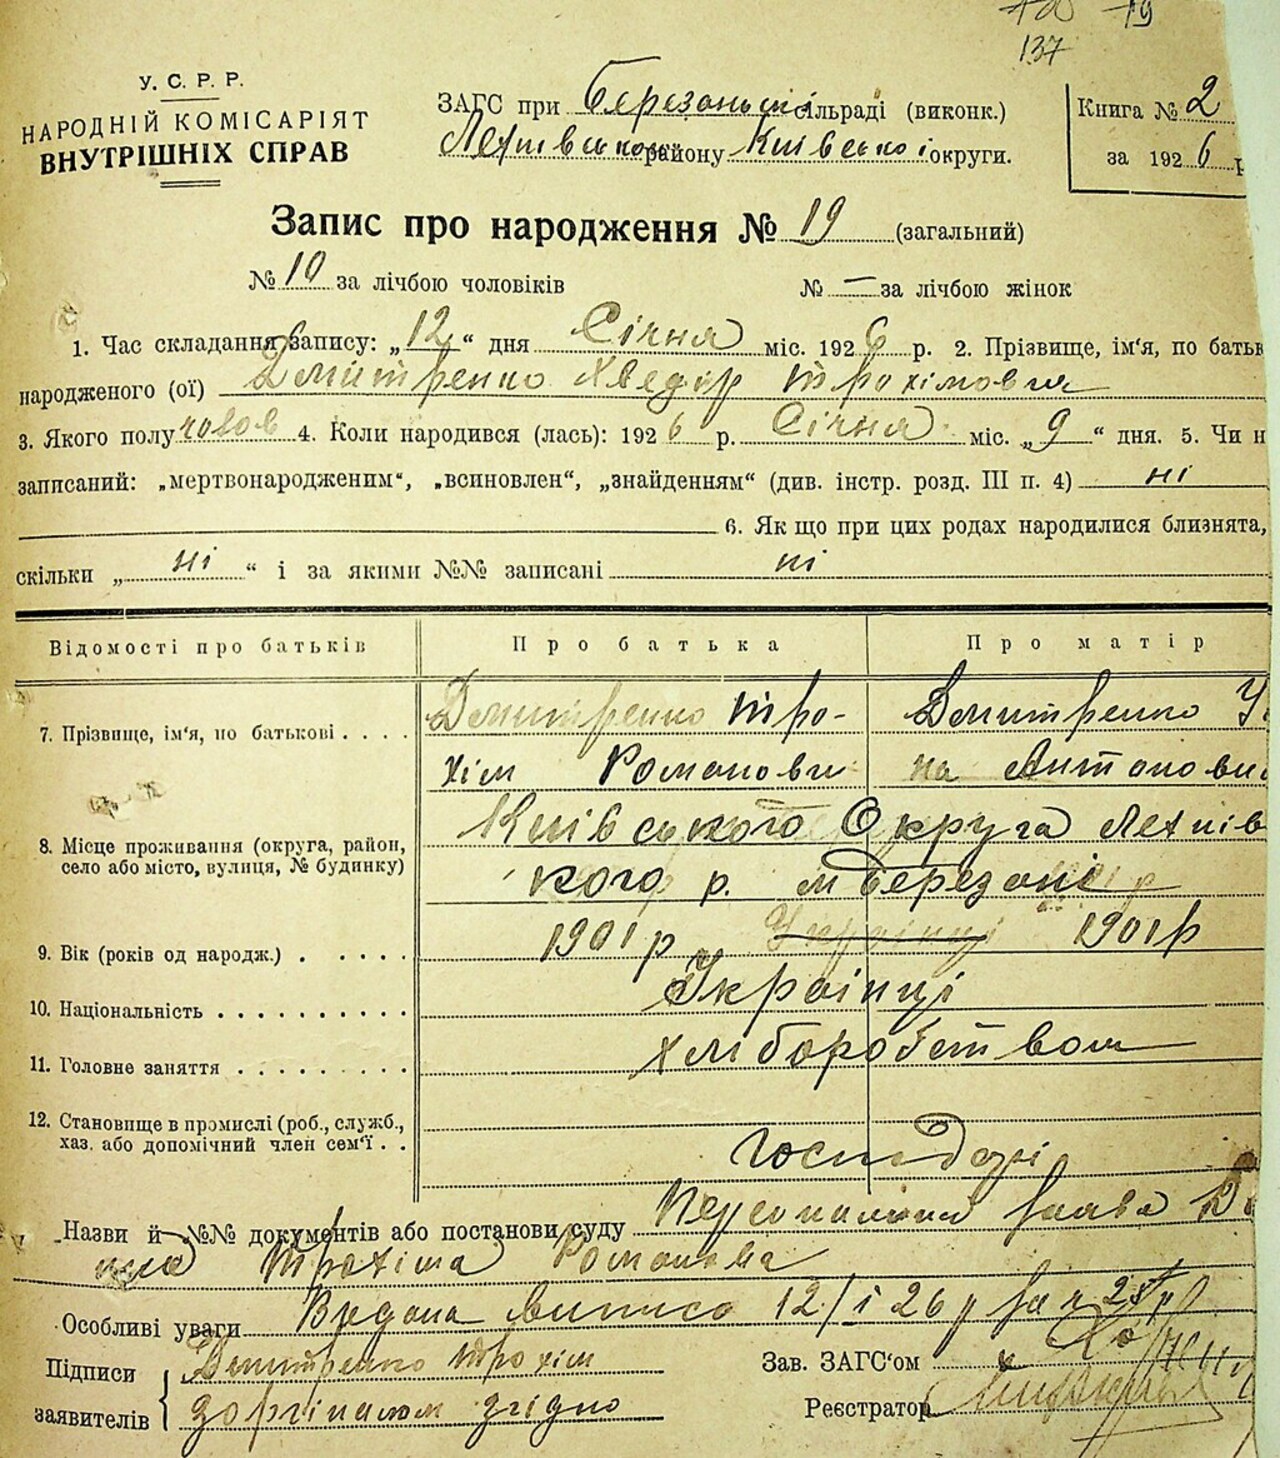 19
137
У. С. Р. Р.
НАРОДНІЙ КОМІСАРІЯТ
ВНУТРІШНІХ СПРАВ
ЗАГС при Березанській сільраді (виконк.)
району Київської округи.
Книга № 2
за 1926 р
Запис про народження № 19 (загальний)
№ 10 за лічбою чоловіків № — за лічбою жінок
1. Час складання запису: „12“ дня Січня міс. 1926 р. 2. Прізвище, ім‘я, по батьк
народженого (ої) Дмитренко Хведір Трохімович
3. Якого полу чолов 4. Коли народився (лась): 1926 р. Січня міс. „9“ дня. 5. Чи н
записаний: „мертвонародженим“, „всиновлен“, „знайденням“ (див. інстр. розд. III п. 4) ні
6. Як що при цих родах народилися близнята,
скільки „ні“ і за якими №№ записані ні
Відомості про батьків Про батька Про матір
7. Прізвище, ім‘я, по батькові . . . . Дмитренко Тро- Дмитренко У
хім Романови на Антонови
8. Місце проживання (округа, район, Київського Округа
село або місто, вулиця, № будинку) кого р. м Березані
9. Вік (років од народж.) . . . . . 1901 р 1901 р
10. Національність . . . . . . . . . . Українці
11. Головне заняття . . . . . . . . . хліборобством
12. Становище в промислі (роб., служб.,
хаз. або допомічний член сем‘ї . . Господарі
Назви й №№ документів або постанови суду Персональна заява Д
Трохіма Романова
Особливі уваги Видана випись 12/і 26 р за №
Підписи Дмитренко Трохім
заявителів з оргіналом згідно
Зав. ЗАГС‘ом
Реєстратор